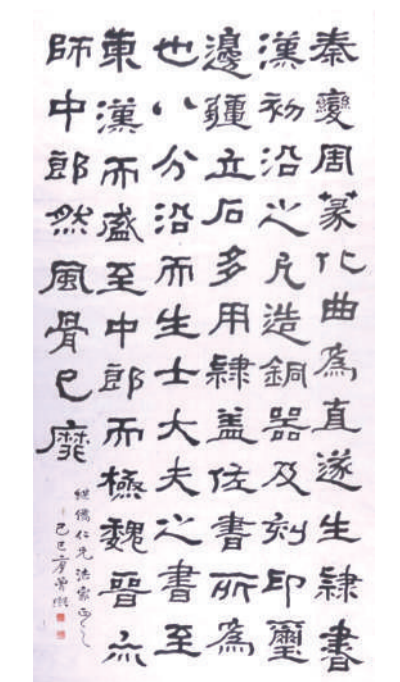 秦變周篆化曲為直遂生隸書
漢初沿之凡造銅器及刻印璽
邊疆立石多用隸蓋佐書所為
也八分沿而生士大夫之書至
東漢而盛至中郎而極魏晉亦
師中郎然風骨已靡
繼儒仁兄法家正之
己巳曾熙